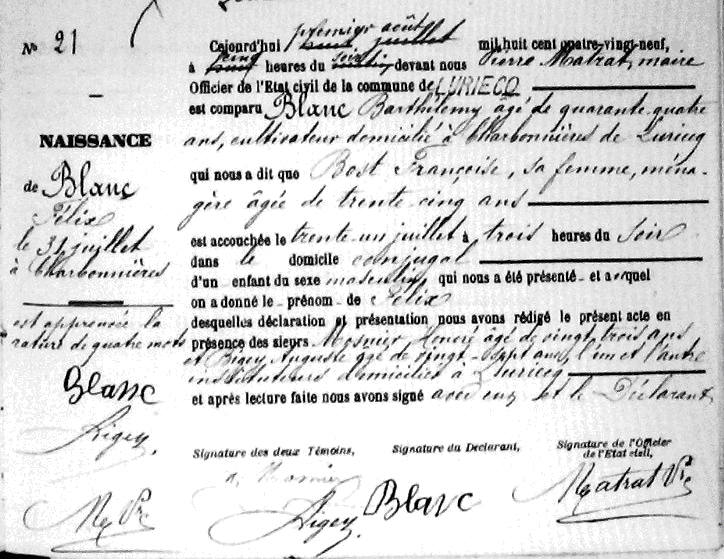 N° 21
NAISSANCE
de Blanc
Félix
le 31 juillet
à Charbonnières
est approuvée la
rature de quatre mots
Blanc
Bigey
M P^re
premier août
Cejourd'hui huit juillet mil huit cent quatre-vingt-neuf,
cinq soir
à huit heures du matin, devant nous Pierre Matrat, maire
Officier de l'Etat civil de la commune de LURIECQ
est comparu Blanc Barthélemy âgé de quarante quatre
ans, cultivateur domicilié à Charbonnières de Luriecq
qui nous a dit que Bost Françoise, sa femme, ména-
gère âgée de trente cinq ans
est accouchée le trente un juillet à trois heures du soir
dans le domicile conjugal
d'un enfant du sexe masculin, qui nous a été présenté et auquel
on a donné le prénom de Félix
desquelles déclaration et présentation nous avons rédigé le présent acte en
présence des sieurs Mosnier Honoré âgé de vingt trois ans
et Bigey Auguste âgé de vingt-sept ans, l'un et l'autre
instituteurs domiciliés à Luriecq
et après lecture faite nous avons signé avec eux et le Déclarant
Signature des deux Témoins, Signature du Déclarant, Signature de l'Officier
de l'Etat civil,
Mosnier
Bigey Blanc Matrat P^re